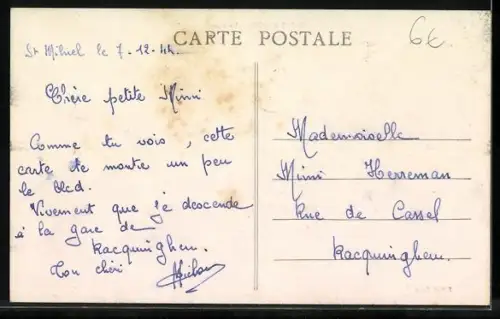 CARTE POSTALE
6€
St Mihiel le 7-12-44
Chère petite Mimi
Comme tu vois, cette
carte te montre un peu
le bled.
Vivement que je descende
à la gare de
Racquinghem.
Ton chéri
Mademoiselle
Mimi Herreman
Rue de Cassel
Racquinghem.